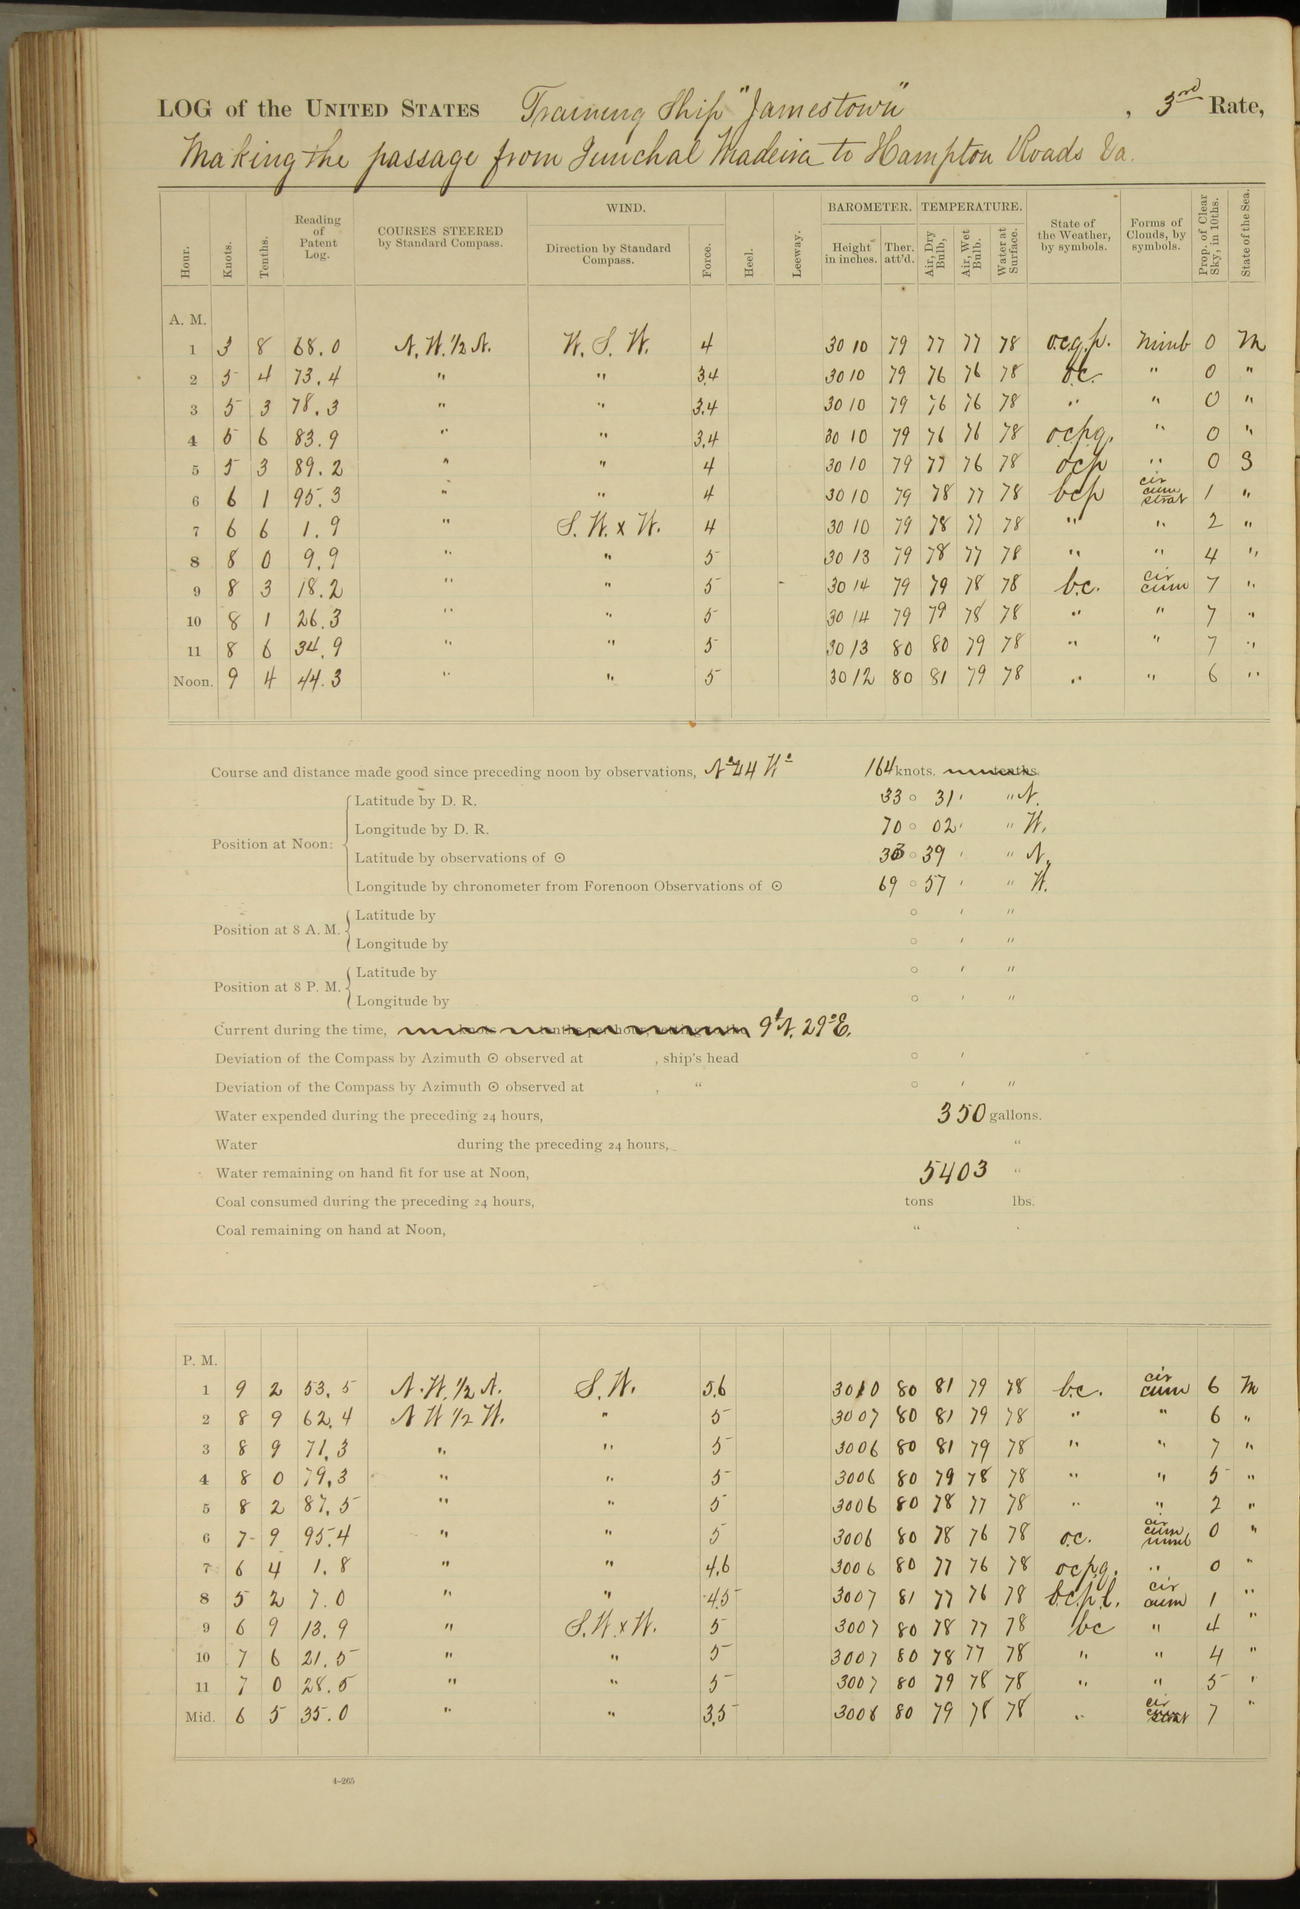 LOG of the UNITED STATES Training Ship "Jamestown", 3rd Rate,
Making the passage from Funchal Madeira to Hampton Roads Va.
Hour. Knots. Tenths. Reading of Patent Log. COURSES STEERED by Standard Compass. WIND. Direction by Standard Compass. Force. Heel. Leeway. BAROMETER. Height in inches. Ther. att'd. TEMPERATURE. Air, Dry Bulb, Air, Wet Bulb. Water at Surface. State of the Weather, by symbols. Forms of Clouds, by symbols. Prop. of Clear Sky, in 10ths. State of the Sea.
A. M.
1 3 8 68.0 N.W.½N. W.S.W. 4 30 10 79 77 77 78 o.c.q.p. Nimb 0 M
2 5 4 73.4 " " 3.4 30 10 79 76 76 78 o.c. " 0 "
3 5 3 78.3 " " 3.4 30 10 79 76 76 78 " " 0 "
4 5 6 83.9 " " 3.4 30 10 79 76 76 78 ocpq. " 0 "
5 5 3 89.2 " " 4 30 10 79 77 76 78 ocp " 0 S
6 6 1 95.3 " " 4 30 10 79 78 77 78 bcp cir cum strat 1 "
7 6 6 1.9 " S.W. x W. 4 30 10 79 78 77 78 " " 2 "
8 8 0 9.9 " " 5 30 13 79 78 77 78 " " 4 "
9 8 3 18.2 " " 5 30 14 79 79 78 78 b.c. cir cum 7 "
10 8 1 26.3 " " 5 30 14 79 79 78 78 " " 7 "
11 8 6 34.9 " " 5 30 13 80 80 79 78 " " 7 "
Noon. 9 4 44.3 " " 5 30 12 80 81 79 78 " " 6 "
Course and distance made good since preceding noon by observations, N° 44 W° 164 knots. tenths.
Position at Noon:
Latitude by D. R. 33 ° 31 ' " N.
Longitude by D. R. 70 ° 02 ' " W.
Latitude by observations of ⊙ 33 ° 39 ' " N.
Longitude by chronometer from Forenoon Observations of ⊙ 69 ° 57 ' " W.
Position at 8 A. M.
Latitude by ° ' "
Longitude by ° ' "
Position at 8 P. M.
Latitude by ° ' "
Longitude by ° ' "
Current during the time, 9' N. 29° E.
Deviation of the Compass by Azimuth ⊙ observed at , ship's head ° '
Deviation of the Compass by Azimuth ⊙ observed at , " ° ' "
Water expended during the preceding 24 hours, 350 gallons.
Water during the preceding 24 hours, "
Water remaining on hand fit for use at Noon, 5403 "
Coal consumed during the preceding 24 hours, tons lbs.
Coal remaining on hand at Noon, "
P. M.
1 9 2 53.5 N.W.½N. S.W. 5.6 30 10 80 81 79 78 b.c. cir cum 6 M
2 8 9 62.4 N W ½ W. " 5 30 07 80 81 79 78 " " 6 "
3 8 9 71.3 " " 5 30 06 80 81 79 78 " " 7 "
4 8 0 79.3 " " 5 30 06 80 79 78 78 " " 5 "
5 8 2 87.5 " " 5 30 06 80 78 77 78 " " 2 "
6 7 9 95.4 " " 5 30 06 80 78 76 78 o.c. cir cum nimb 0 "
7 6 4 1.8 " " 4.6 30 06 80 77 76 78 ocpq. " 0 "
8 5 2 7.0 " " 4.5 30 07 81 77 76 78 b.c.p.l. cir cum 1 "
9 6 9 13.9 " S.W. x W. 5 30 07 80 78 77 78 bc " 4 "
10 7 6 21.5 " " 5 30 07 80 78 77 78 " " 4 "
11 7 0 28.5 " " 5 30 07 80 79 78 78 " " 5 "
Mid. 6 5 35.0 " " 3.5 30 08 80 79 78 78 " cir strat 7 "
4-265